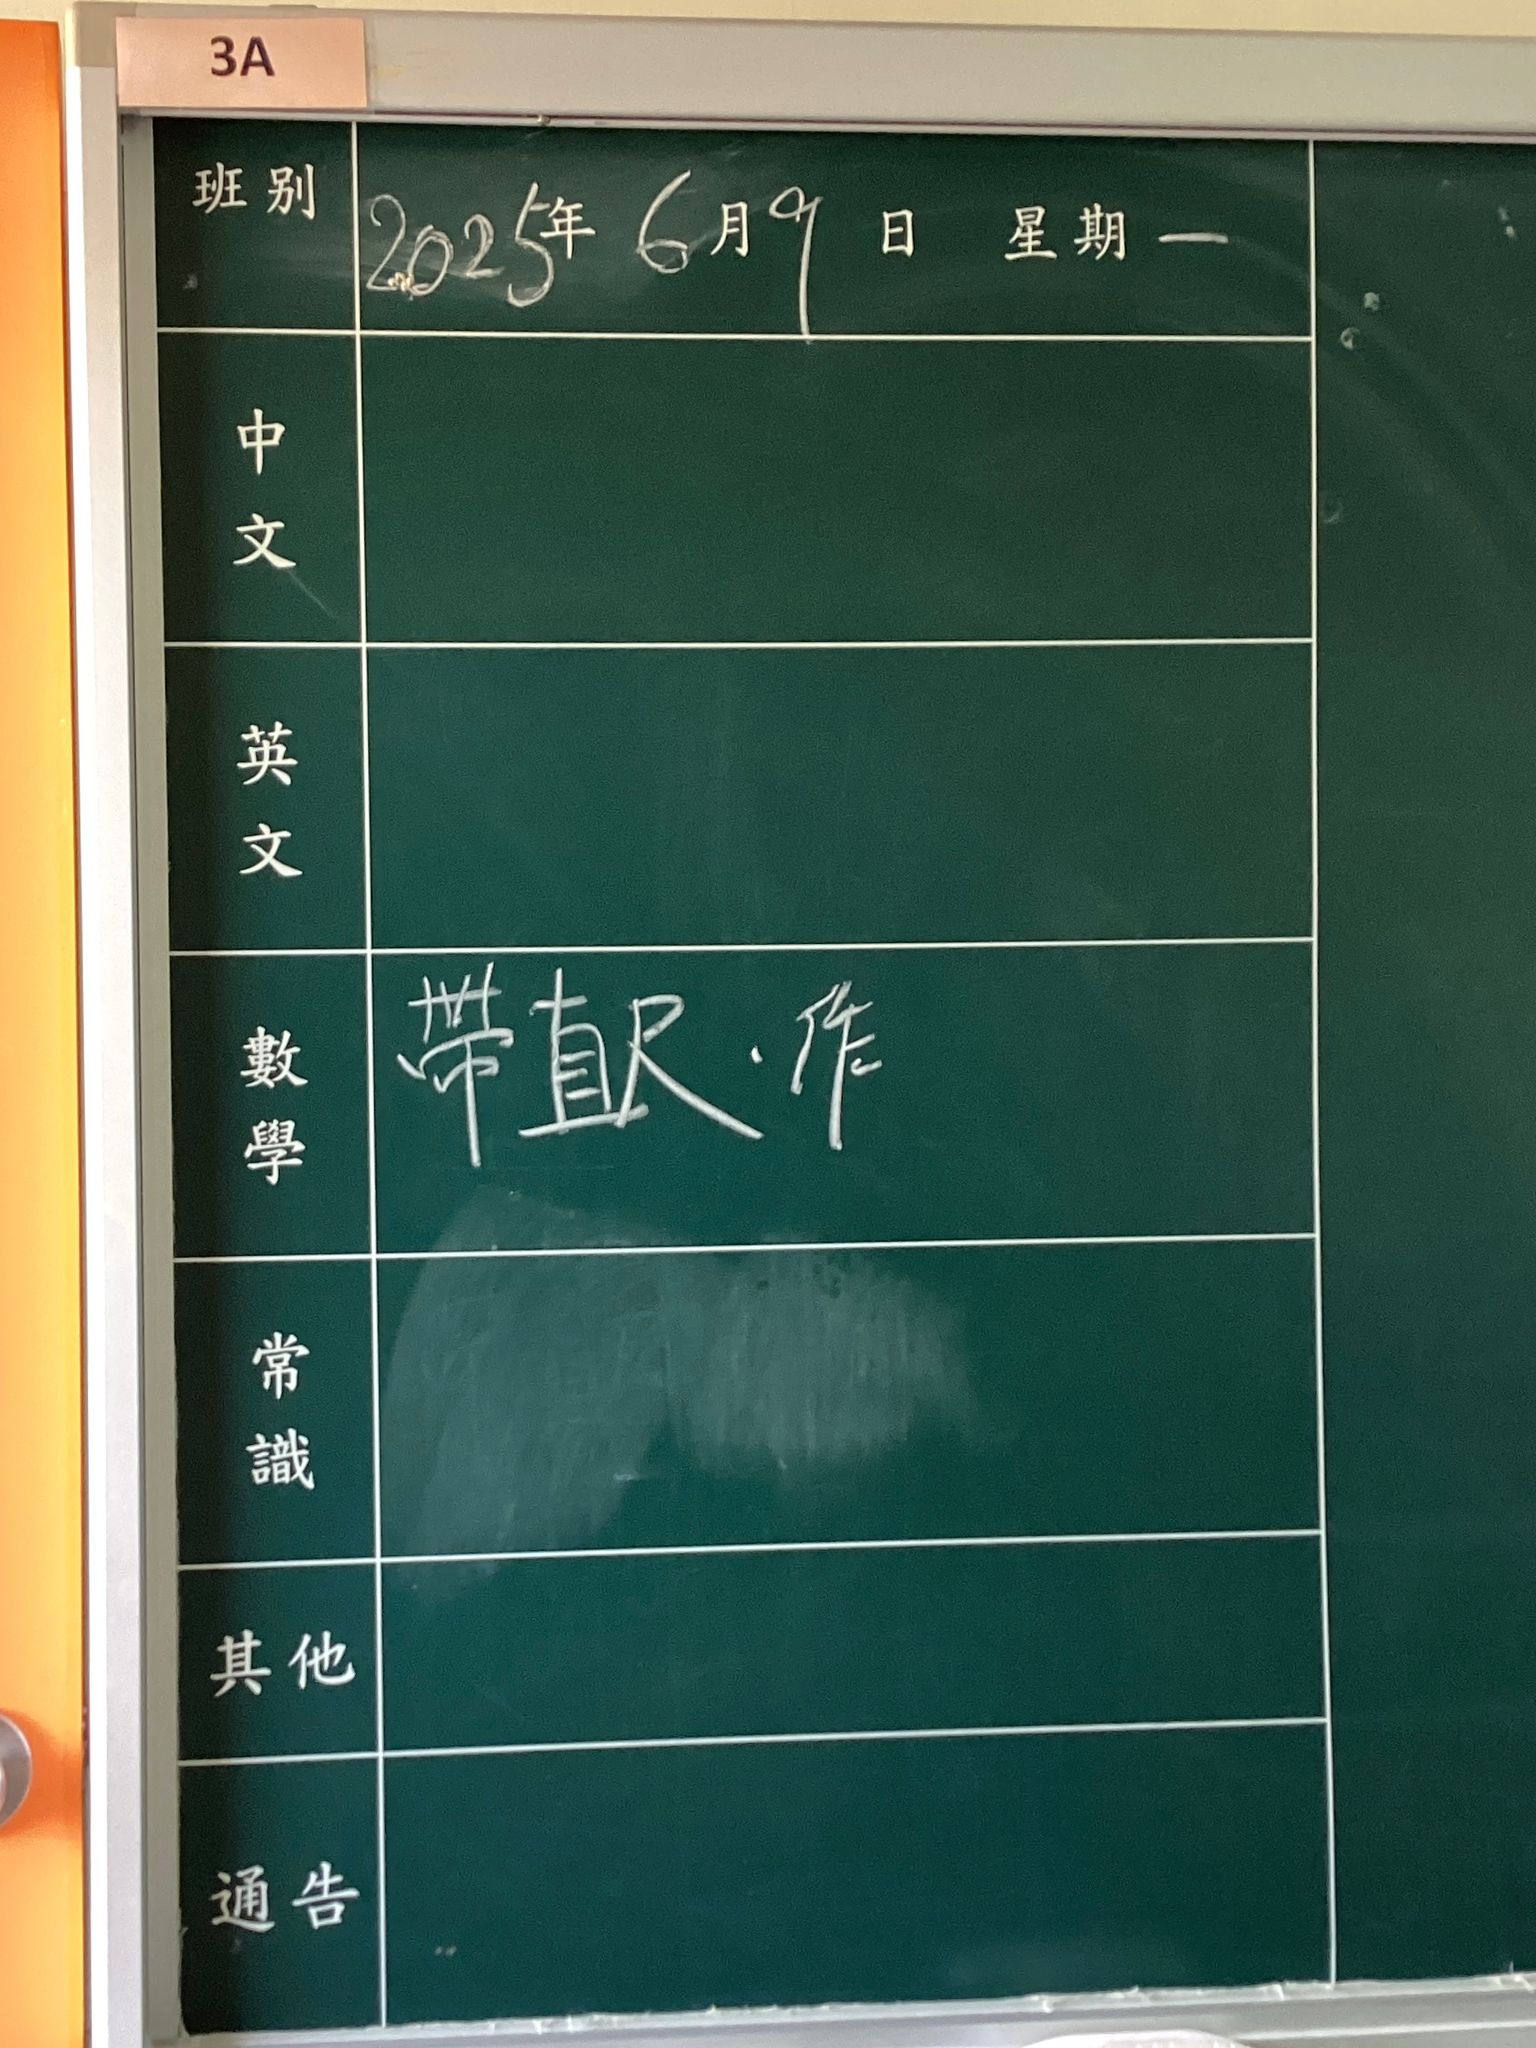 3A
班別 2025年 6月9日 星期一
中文
英文
數學 帶直尺．作
常識
其他
通告